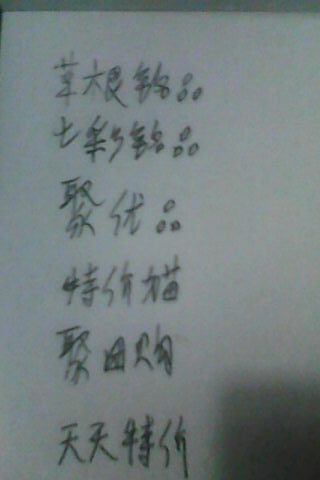 草根铭品
七彩铭品
聚优品
特价猫
聚团购
天天特价